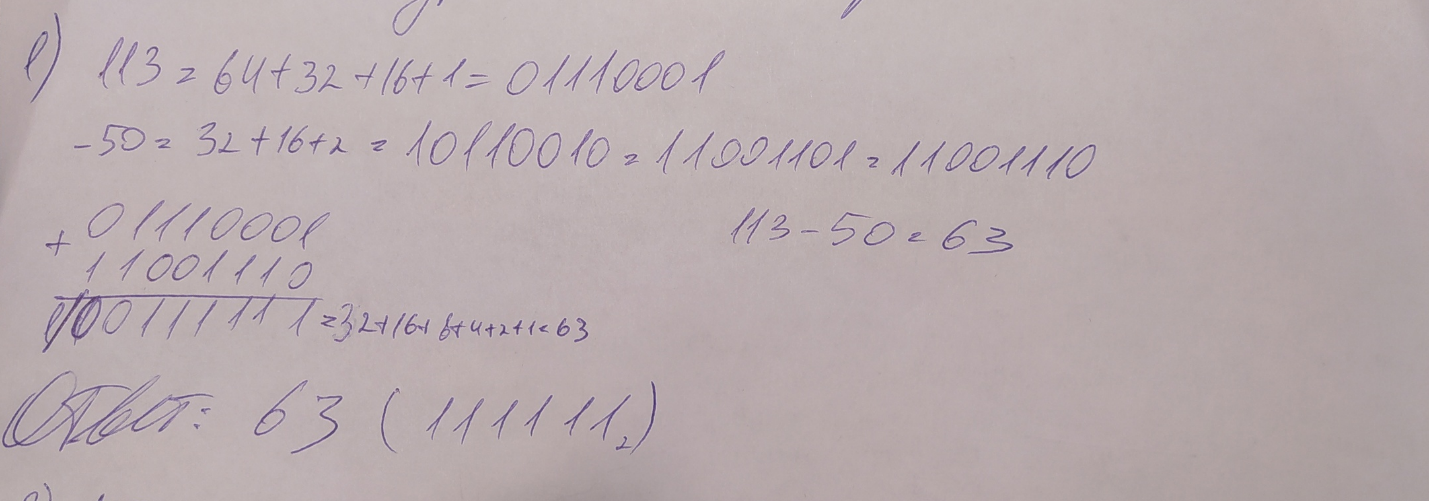 1) 113 = 64+32+16+1 = 01110001
-50 = 32+16+2 = 10110010 = 11001101 = 11001110
+ 01110001
11001110
113-50=63
00111111 = 32+16+8+4+2+1=63
Ответ: 63 (111111₂)